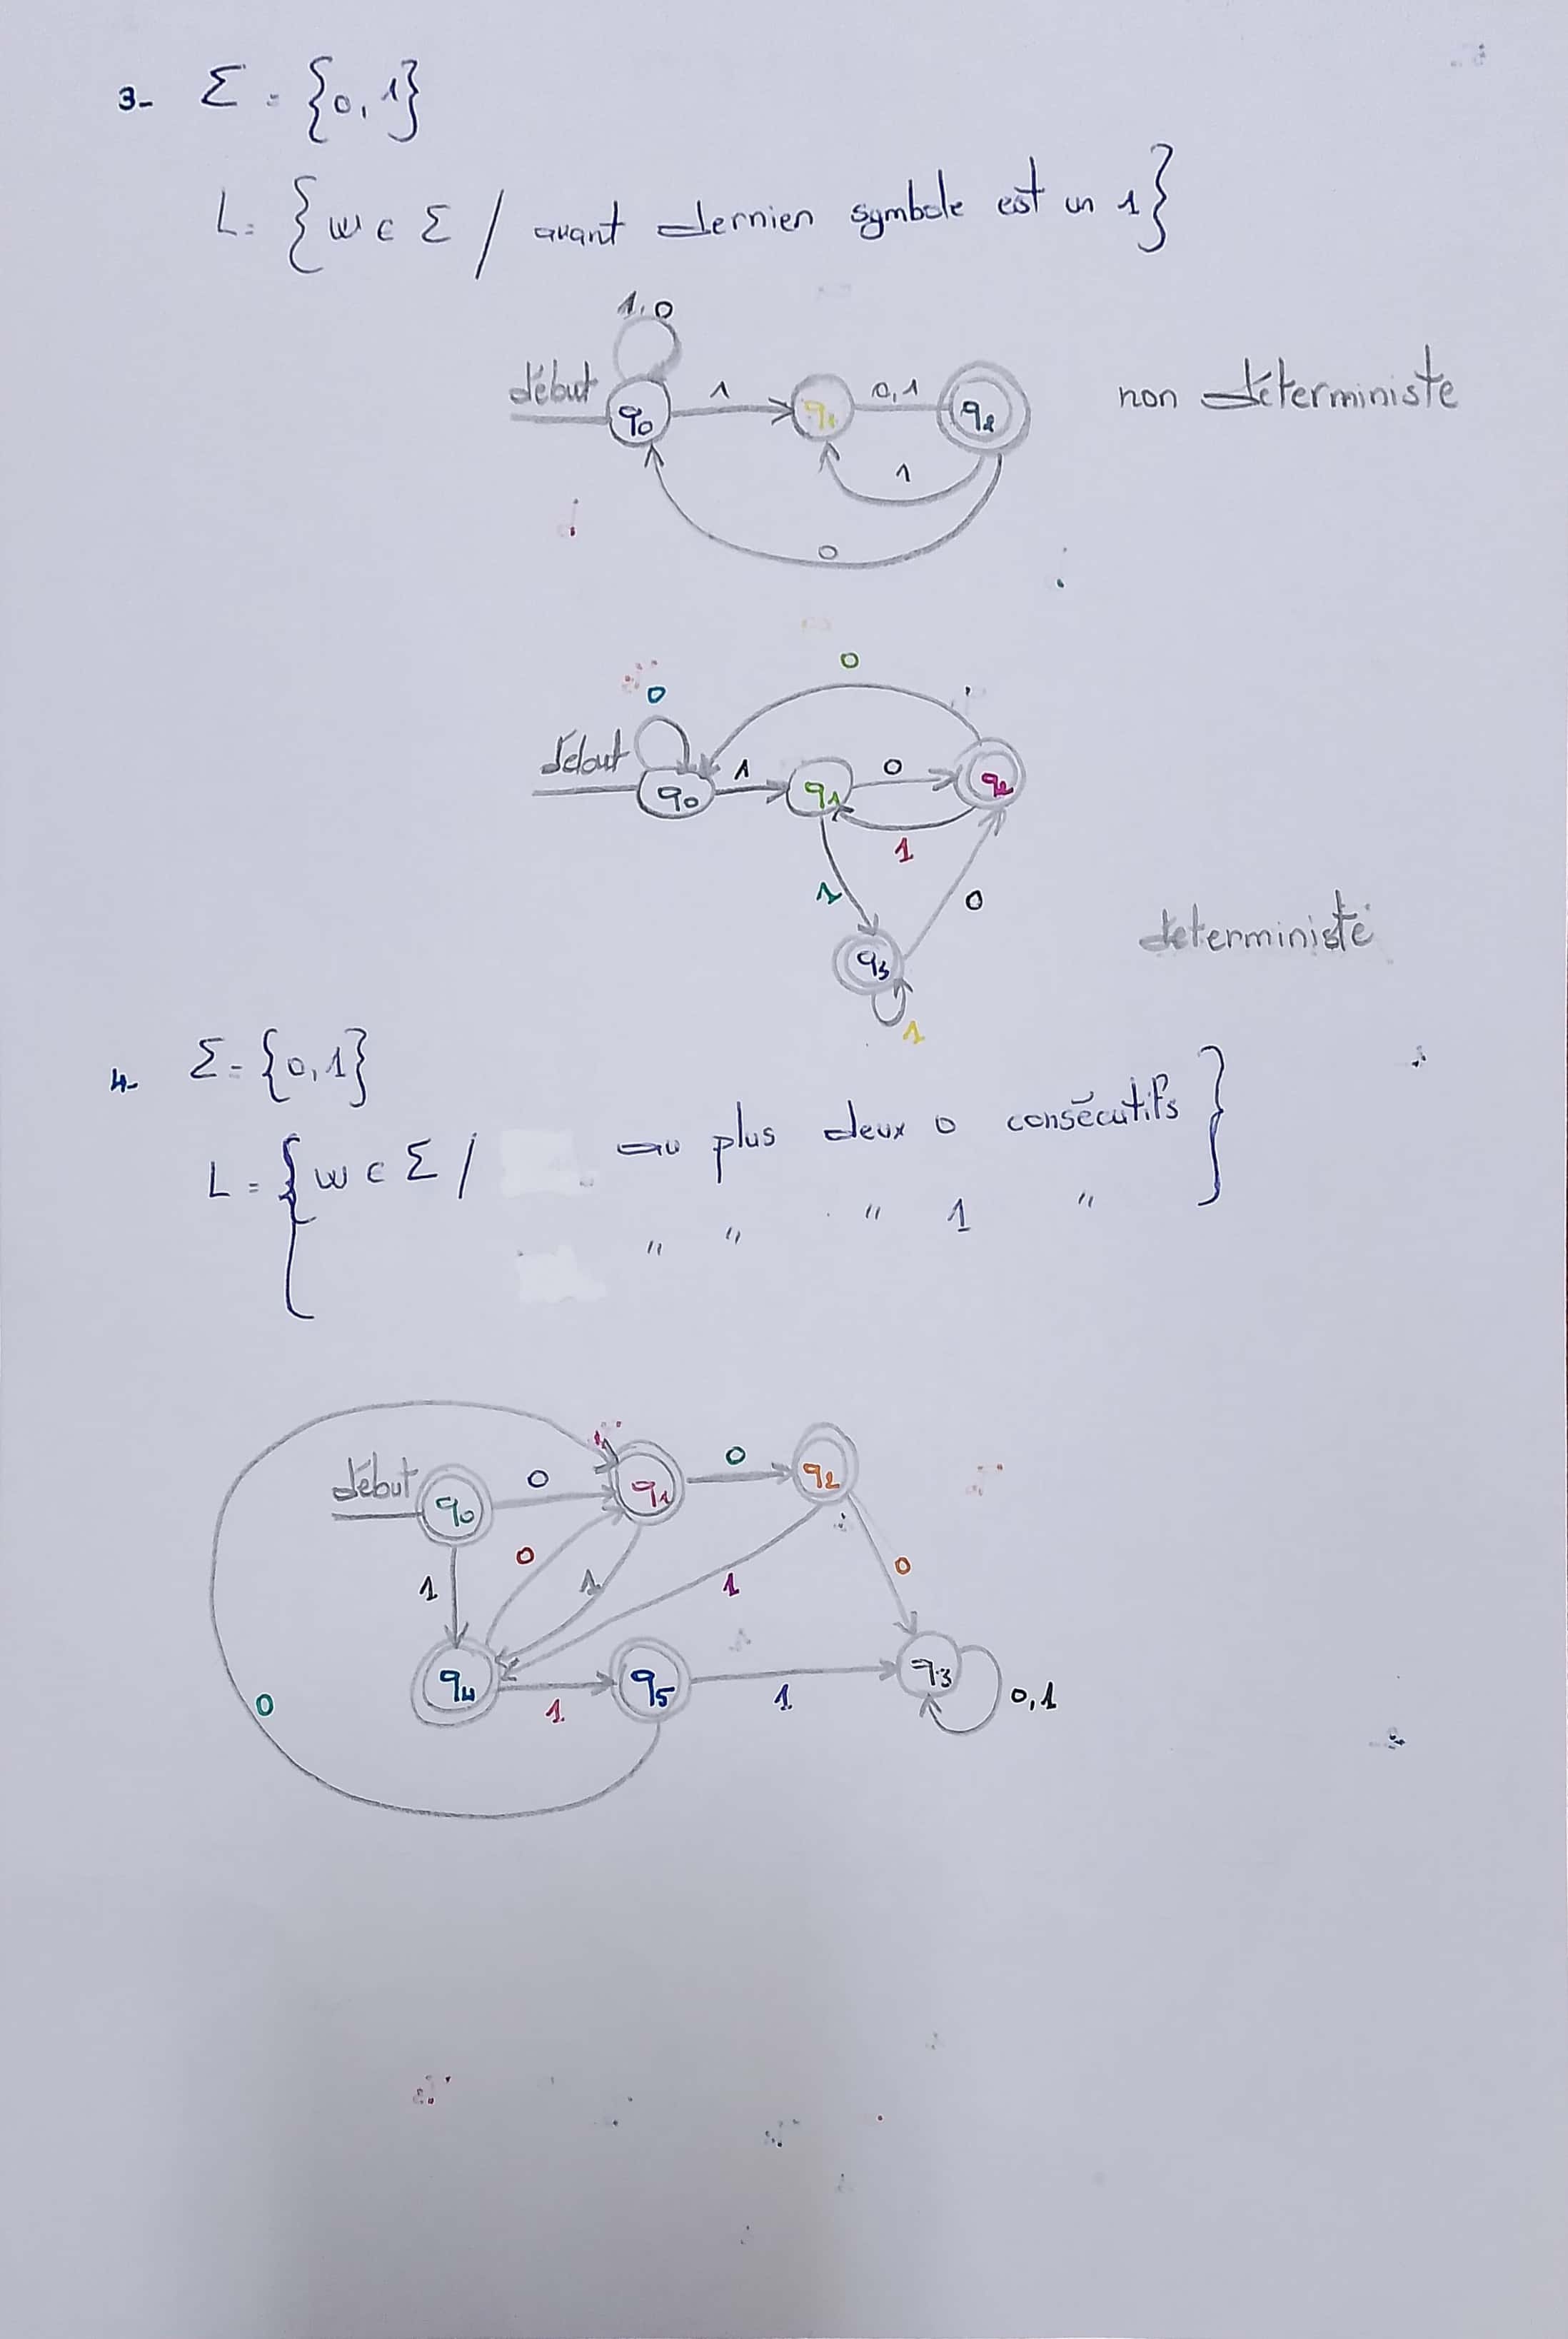 3- Σ = {0, 1}
L = {w ∈ Σ / avant dernier symbole est un 1}
1,0
début q0 1 q1 0,1 q2 non déterministe
1
0
0
0
début q0 1 q1 0 q2
1
1 0
déterministe
q3
1
4- Σ = {0,1}
L = {w ∈ Σ / au plus deux 0 consécutifs }
" " " 1 "
début q0 0 q1 0 q2
1 0 1 1 0
q4 1 q5 1 q3 0,1
0